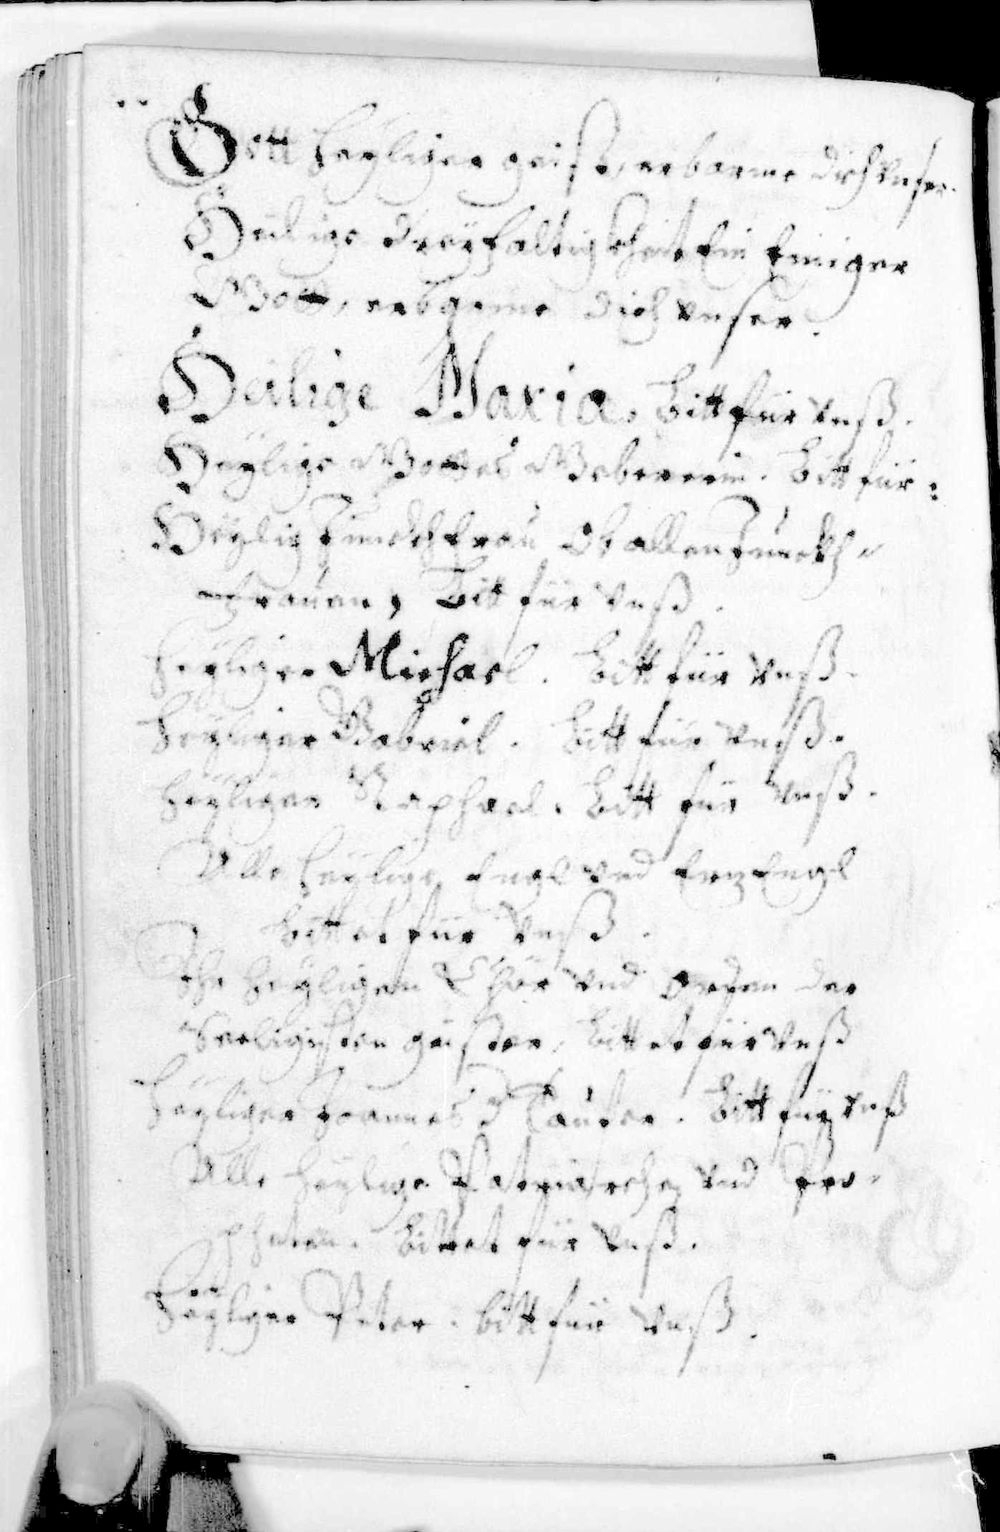 Gott heyliger geist, erbarme dich vnser.
Heilige dreyfaltigkheit Ein Einiger
Gott, erbarme dich vnser.
Heilige Maria. bitt für vnß.
Heylige Gottes Gebererin. bitt für:
Heylig Junckhfrau Ob allen Junckh-
frauen, bitt für vnß.
heyliger Michael. bitt für vnß.
heyliger Gabriel. bitt für vnß.
heyliger Raphael. bitt für vnß.
Alle heylige Engl vnd ErzEngl
bittet für vnß.
Ihr heyligen Chör vnd Orden der
Seeligisten geister, bittet für vnß
heyliger Joannes d Tauffer. bitt für vnß
Alle heylige Patriarchen vnd Pro-
pheten. bittet für vnß.
heyliger Peter. bitt für vnß.